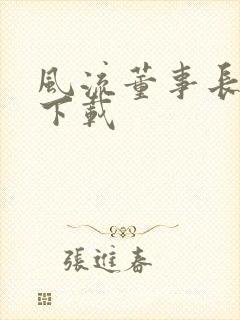 風流董事長
下載
張進春